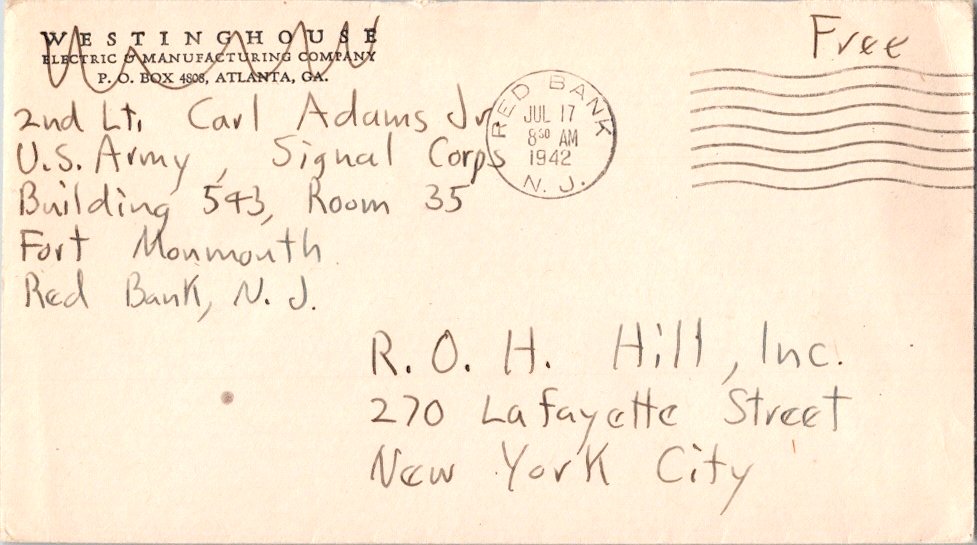 WESTINGHOUSE
ELECTRIC & MANUFACTURING COMPANY
P. O. BOX 4808, ATLANTA, GA.
Free
2nd Lt. Carl Adams Jr.
U.S. Army, Signal Corps
Building 543, Room 35
Fort Monmouth
Red Bank, N. J.
RED BANK
JUL 17
8 30 AM
1942
N. J.
R. O. H. Hill, Inc.
270 Lafayette Street
New York City